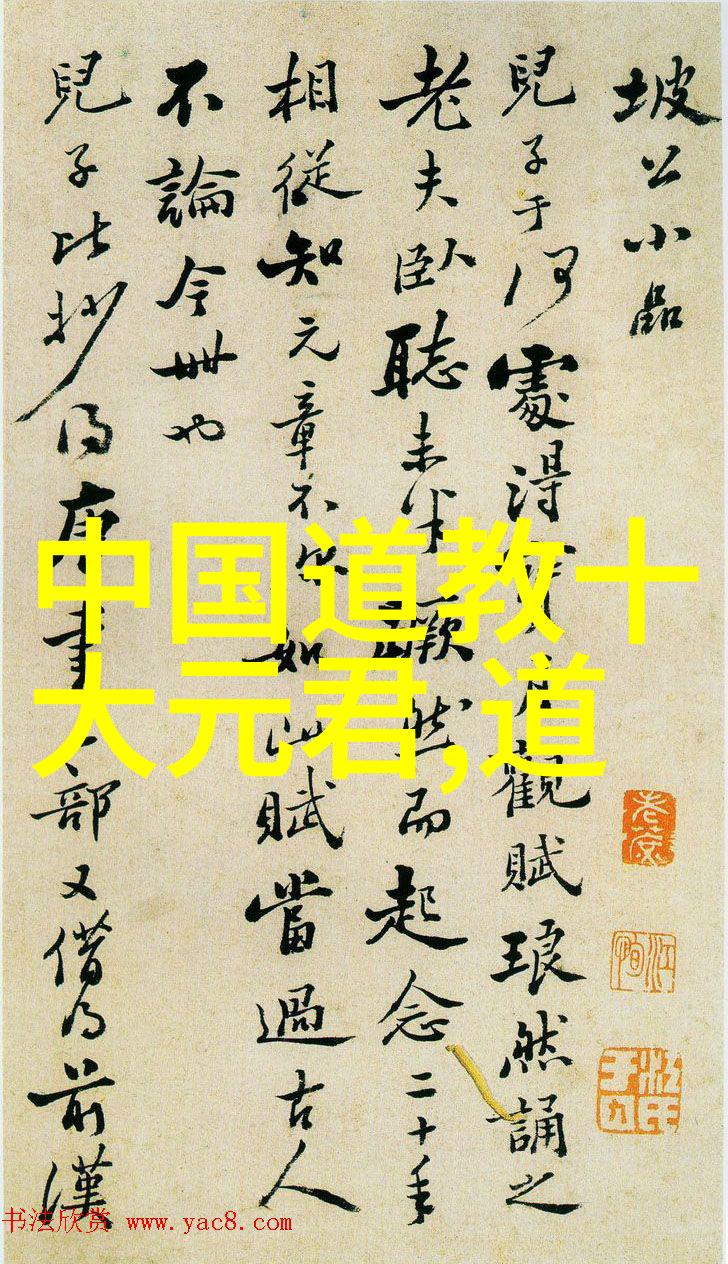 坡公小品
兒子于何處得月觀賦琅然誦之
老夫臥聽未半蹶然而起念二十年
相從知元章不盡如此賦當過古人
不論今世也
兒子比抄得唐書一部又借得前漢
中国道教十
大元君,道
书法欣赏 www.yac8.com